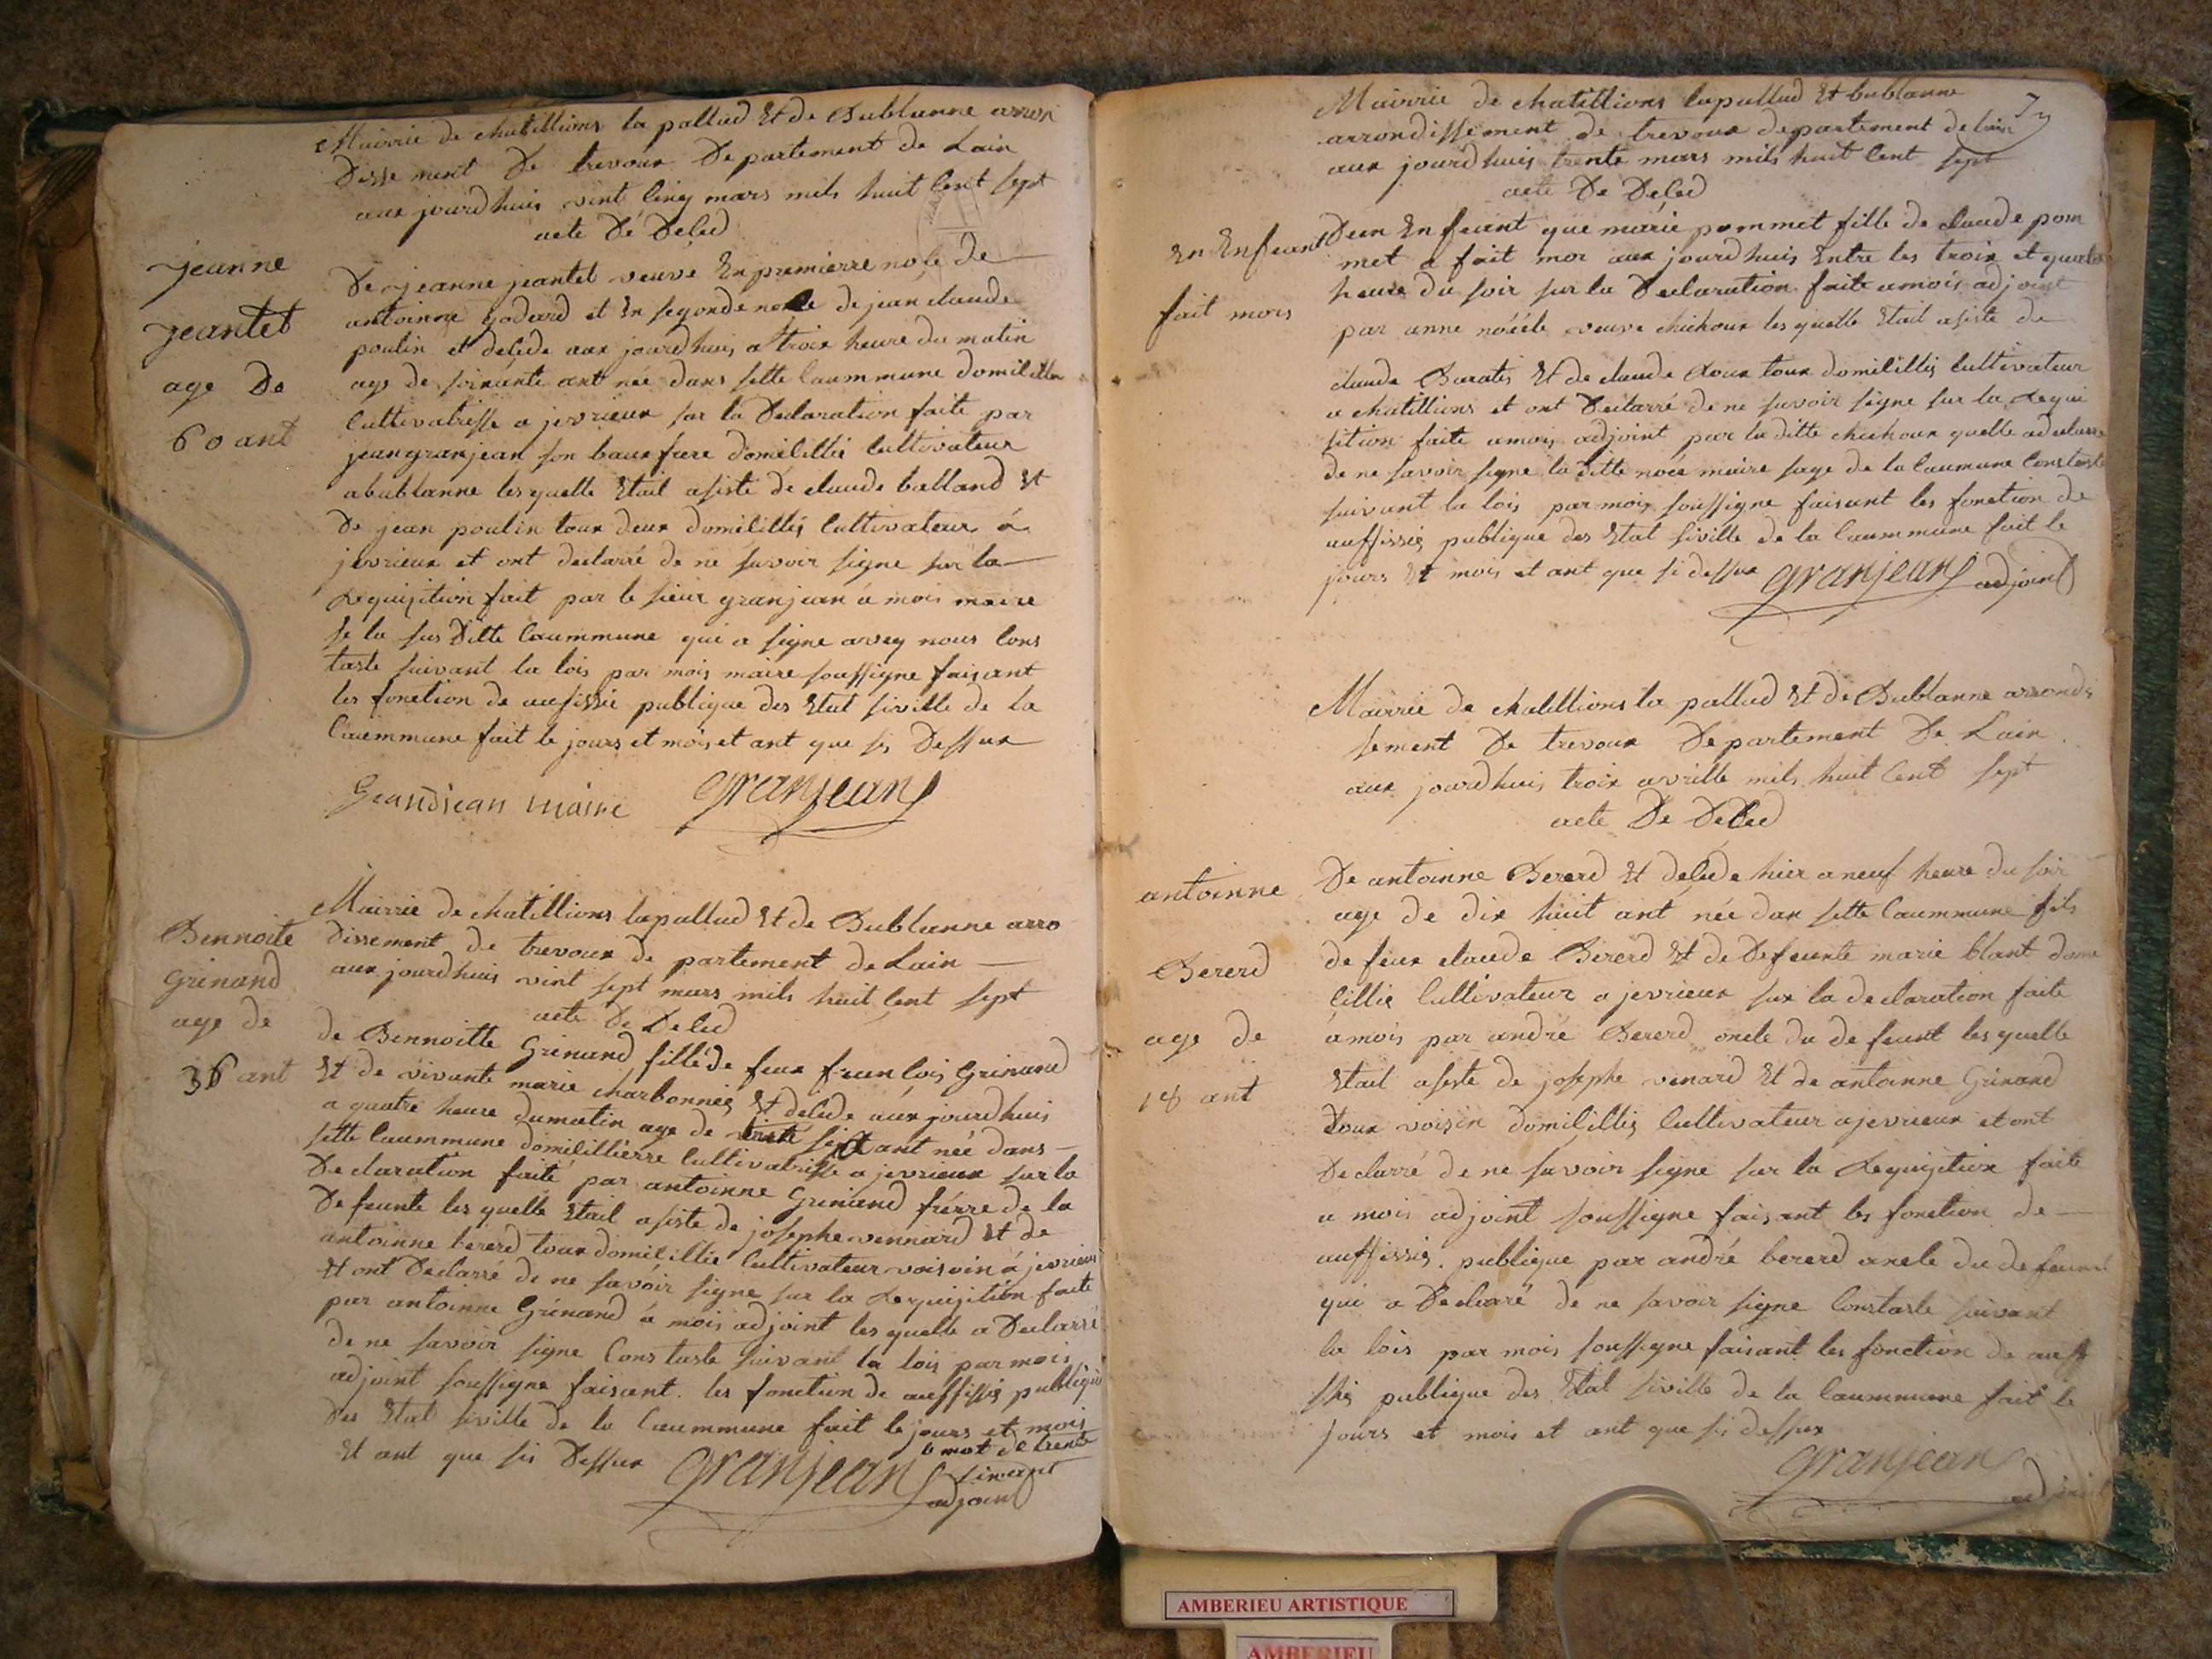 Mairrie de chatillions la pallud Et de Bublanne arron
disse ment De trevoux Departement de Lain
aux jourdhuis vint cinq mars mils huit cent sept
acte De Deced
jeanne
jeantet
age De
60 ant
De jeanne jeantet veuve En premierre nose de
antoinne godard et En segonde nose de jean claude
poulin et decede aux jourdhuis a troix heure du matin
age de soixante ant née dans sette caummune domicillie
cultivatrisse a jevrieux sur la Declaration faite par
jean granjean son baux frere domicillié cultivateur
a bublanne lesquelle Etait asisté de claude balland Et
De jean poulin toux deux domicilliés cultivateur á
jevrieux et ont declarré de ne savoir signe sur la
Requisition fait par le sieur granjean a mois maire
de la sus Ditte caummune qui a signe avec nous cons
taste suivant la lois par mois maire soussigne faisant
les fonction de aufissié publique des Etat siville de la
caummune fait le jours et mois et ant que sis Dessux
Grandjean maire granjean
Mairrie de chatillions lapallud Et de Bublanne arro
dissement de trevoux de partement de Lain
aux jourdhuis vint sept mars mils huit cent sept
acte De Deced
Bennoite
Grinand
age de
36 ant
de Bennoitte Grinand fille de feux francois Grinand
Et de vivante marie charbonnier Et decede aux jourdhuis
a quatre heure du matin age de trente six ant née dans
sette caummune domicillierre cultivatrisse a jevrieux sur la
Declaration faite par antoinne Grinand frerre de la
Defeunte les quelle Etait asiste de josephe vennard Et de
antoinne bererd toux domicillie cultivateur voisin á jevrieux
Et ont Declarré de ne savoir signe sur la Requisition faite
par antoinne Grinand á mois adjoint les quelle a Declarré
de ne savoir signe Constaste suivant la lois par mois
adjoint soussigne faisant les fonction de auffissie publique
Des Etat siville de la Caummune fait le jours et mois
Et ant que sis Dessux granjean le mot de trente
sixant
adjoint
Mairrie de chatillions lapallud Et bublanne
arrondissement de trevoux departement de lain
aux jourdhuis trente mars mils huit cent sept
acte De Deced
En Enfeant
fait mors
Deun Enfeant que marie pommet fille de claude pom
met a fait mor aux jourdhuis Entre les troix et quatre
heure du soir sur la Declaration faite a mois adjoint
par anne nóéele veuve chichoux les quelle Etait asisté de
claude Baratis Et de claude Roux toux domicillis cultivateur
a chatillions et ont Declarré de ne savoir signe sur la Requi
sition faite a mois adjoint par la ditte chichoux quelle a declarre
de ne savoir signe la ditte noée maire sage de la Caumune Constaste
suivant la lois par mois soussigne faisant les fonction de
auffissies publique des Etat siville de la Caummune fait le
jours Et mois et ant que si dessux granjean adjoint
Mairrie de chatillions la pallud Et de Bublanne arrondi
sement De trevoux Departement De Lain
aux jourdhuis troix avrille mils huit cent sept
acte De Deced
antoinne
Bererd
age de
18 ant
De antoinne Bererd Et decede hier a neuf heure du soir
age de dix huit ant née dan sette Caummune fils
de feux claude Bererd Et de Defeunte marie blant domi
cillie cultivateur a jevrieux sur la declaration faite
á mois par andré Bererd oncle du defeunt les quelle
Etait asiste de josephe venard Et de antoinne Grinand
toux voisin domicillis cultivateur a jevrieux et ont
Declarré de ne savoir signe sur la Requisition faite
a mois adjoint soussigne faisant les fonction de
auffissies publique par andre bererd oncle du defeunt
qui a Declaré de ne savoir signe Constaste suivant
la lois par mois soussigne faisant les fonction de auffi
ssies publique des Etat siville de la Caummune fait le
jours et mois et ant que sis dessux
granjean
adjoint
AMBERIEU ARTISTIQUE
AMBERIEU